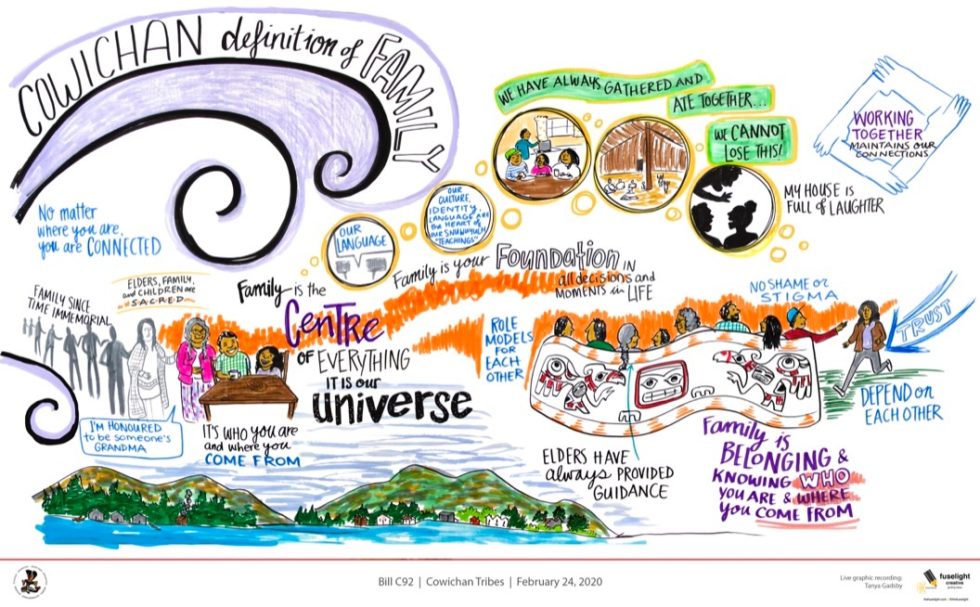 COWICHAN definition of FAMILY
WE HAVE ALWAYS GATHERED AND
ATE TOGETHER...
WE CANNOT
LOSE THIS!
WORKING
TOGETHER
MAINTAINS OUR
CONNECTIONS
MY HOUSE IS
FULL of LAUGHTER
OUR
CULTURE,
IDENTITY,
LANGUAGE ARE
the HEART of
OUR SNUW'UYULH
"TEACHINGS"
OUR
LANGUAGE
No matter
where you are,
you are CONNECTED
Family is your Foundation IN
all decisions and
MOMENTS in LIFE
ELDERS, FAMILY,
and CHILDREN are
SACRED
FAMILY SINCE
TIME IMMEMORIAL
Family is the
CENTRE
OF EVERYTHING
IT IS our
universe
ROLE
MODELS
FOR
EACH
OTHER
NO SHAME or
STIGMA
TRUST
DEPEND on
EACH OTHER
I'M HONOURED
to be someone's
GRANDMA
IT'S WHO YOU ARE
and where you
COME FROM
ELDERS HAVE
always PROVIDED
GUIDANCE
Family is
BELONGING &
KNOWING WHO
YOU ARE & WHERE
YOU COME FROM
Bill C92 | Cowichan Tribes | February 24, 2020
Live graphic recording:
Tanya Gadsby
fuselight
creative